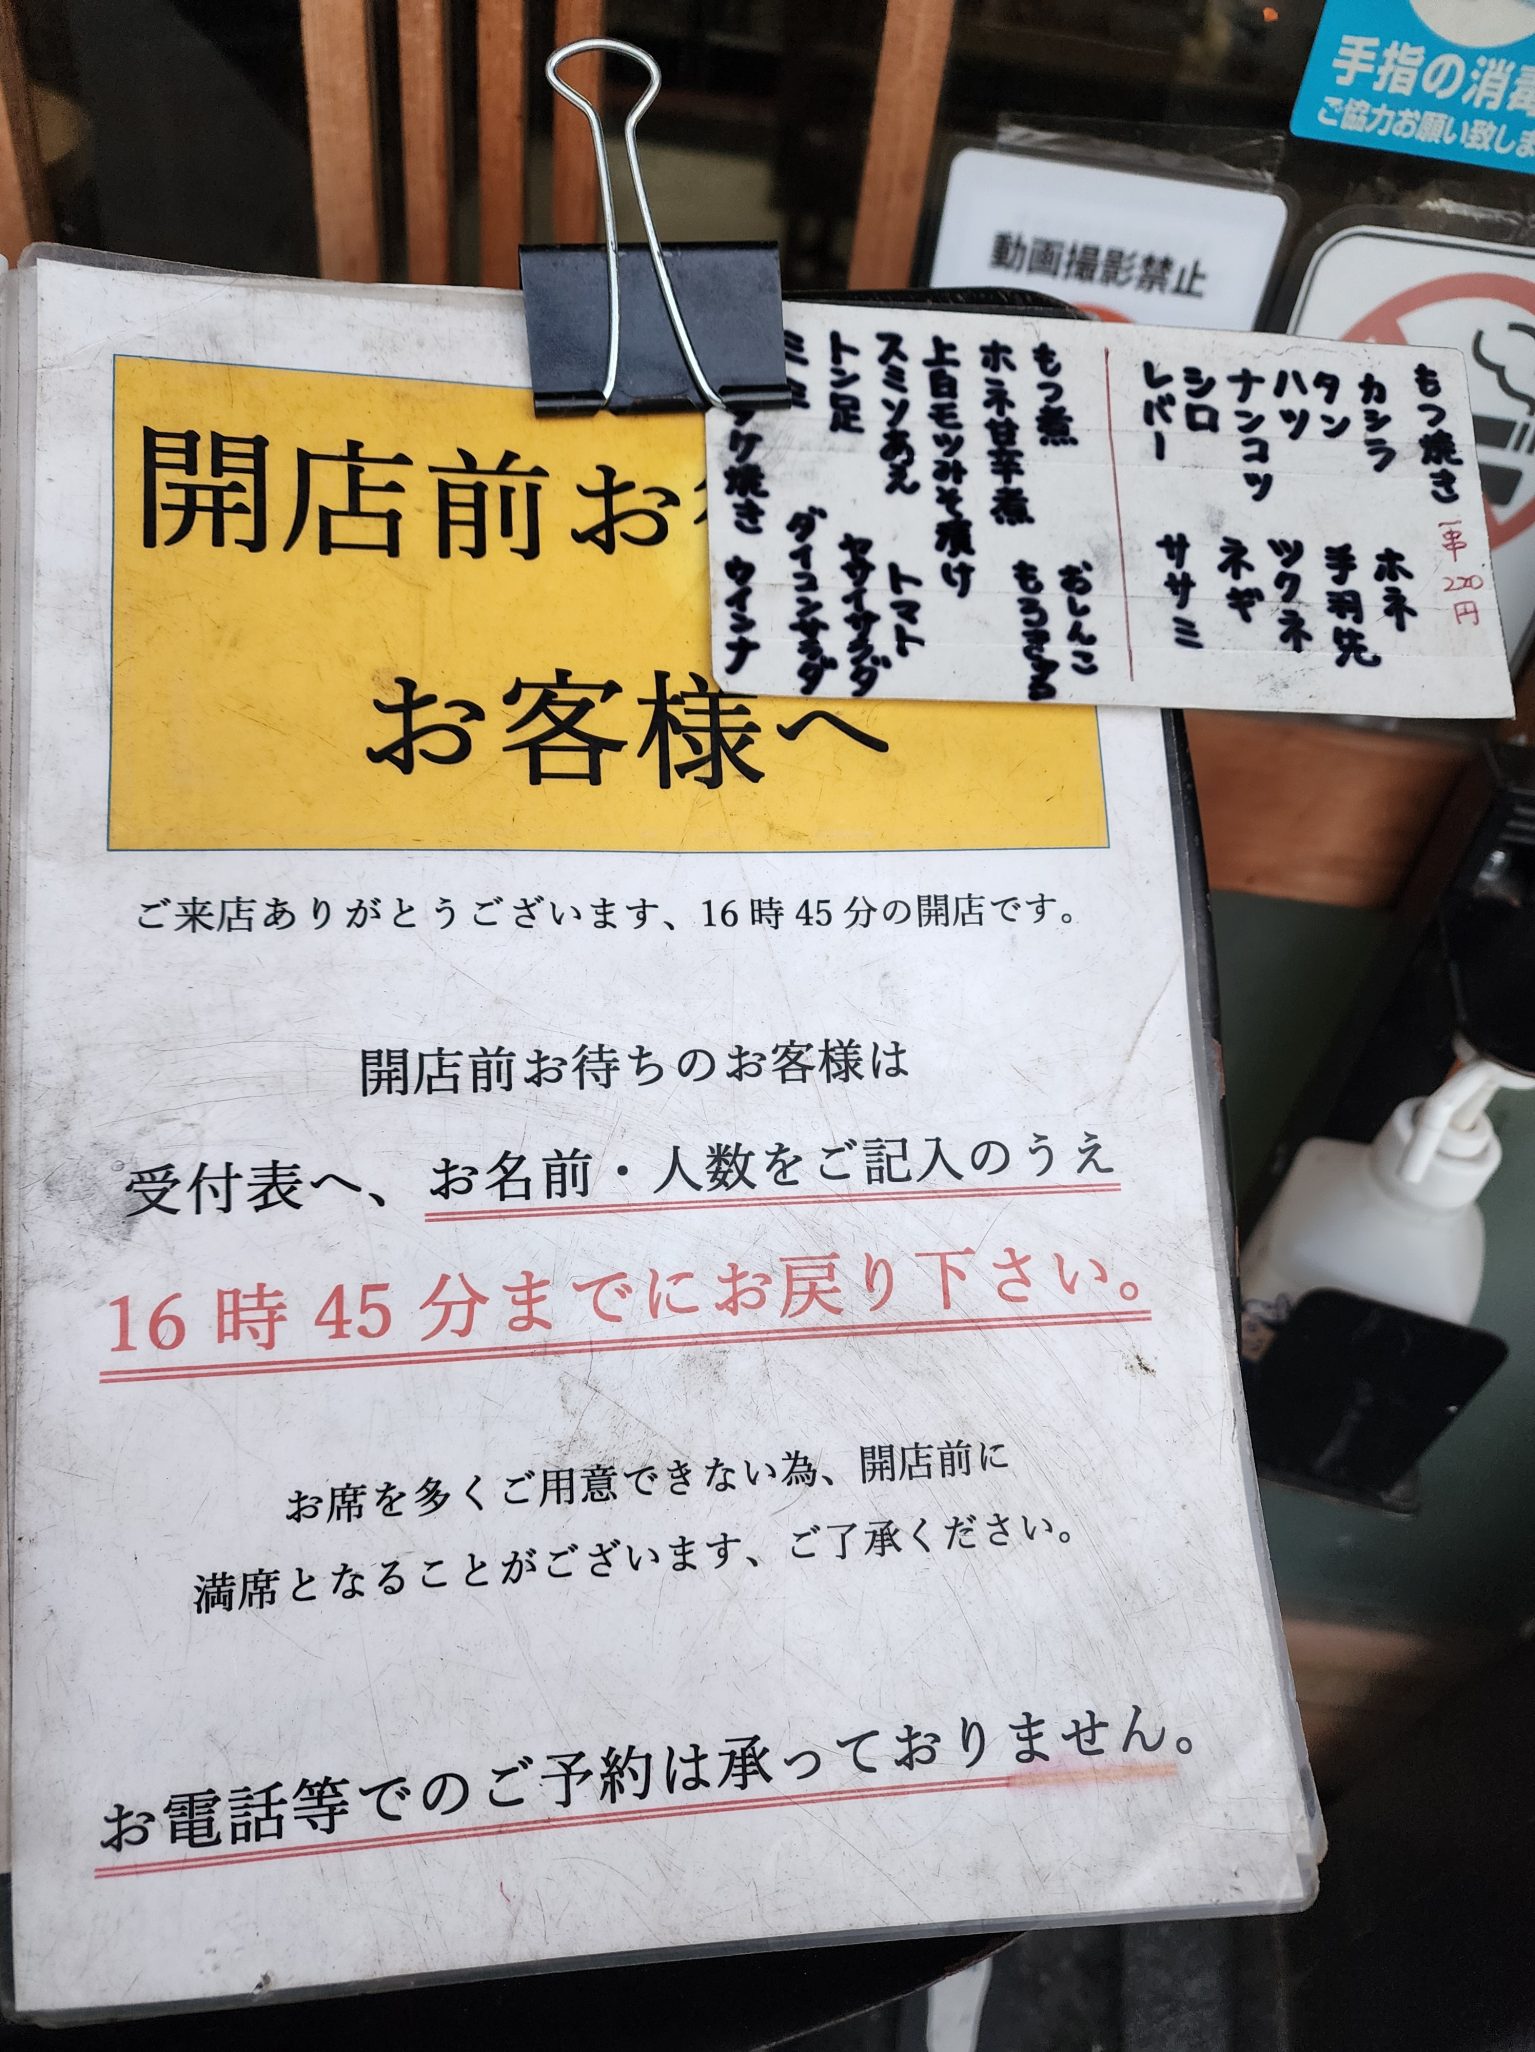 手指の消毒
ご協力お願い致しま
動画撮影禁止
もつ焼き 一串 220円
カシラ ホネ
タン 手羽先
ハツ ツクネ
ナンコツ ネギ
シロ ササミ
レバー
もつ煮 おしんこ
ホネ甘辛煮 もろきゅう
上白モツみそ漬け
スミソあえ トマト
トン足 ヤサイサラダ
ミミ ダイコンサラダ
ケ焼き ウインナ
開店前お
お客様へ
ご来店ありがとうございます、16時45分の開店です。
開店前お待ちのお客様は
受付表へ、お名前・人数をご記入のうえ
16時45分までにお戻り下さい。
お席を多くご用意できない為、開店前に
満席となることがございます、ご了承ください。
お電話等でのご予約は承っておりません。